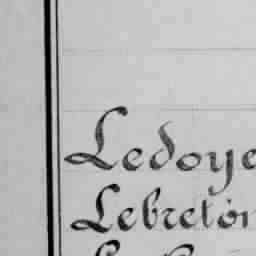 Ledoye
Lebreton